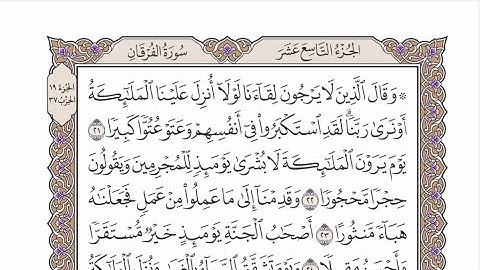 الجزء التاسع عشر
سورة الفرقان
الجزء ١٩
الحزب ٣٧
۞ وَقَالَ ٱلَّذِينَ لَا يَرۡجُونَ لِقَآءَنَا لَوۡلَآ أُنزِلَ عَلَيۡنَا ٱلۡمَلَٰٓئِكَةُ
أَوۡ نَرَىٰ رَبَّنَاۗ لَقَدِ ٱسۡتَكۡبَرُواْ فِيٓ أَنفُسِهِمۡ وَعَتَوۡ عُتُوّٗا كَبِيرٗا ٢١
يَوۡمَ يَرَوۡنَ ٱلۡمَلَٰٓئِكَةَ لَا بُشۡرَىٰ يَوۡمَئِذٖ لِّلۡمُجۡرِمِينَ وَيَقُولُونَ
حِجۡرٗا مَّحۡجُورٗا ٢٢ وَقَدِمۡنَآ إِلَىٰ مَا عَمِلُواْ مِنۡ عَمَلٖ فَجَعَلۡنَٰهُ
هَبَآءٗ مَّنثُورًا ٢٣ أَصۡحَٰبُ ٱلۡجَنَّةِ يَوۡمَئِذٍ خَيۡرٞ مُّسۡتَقَرّٗا